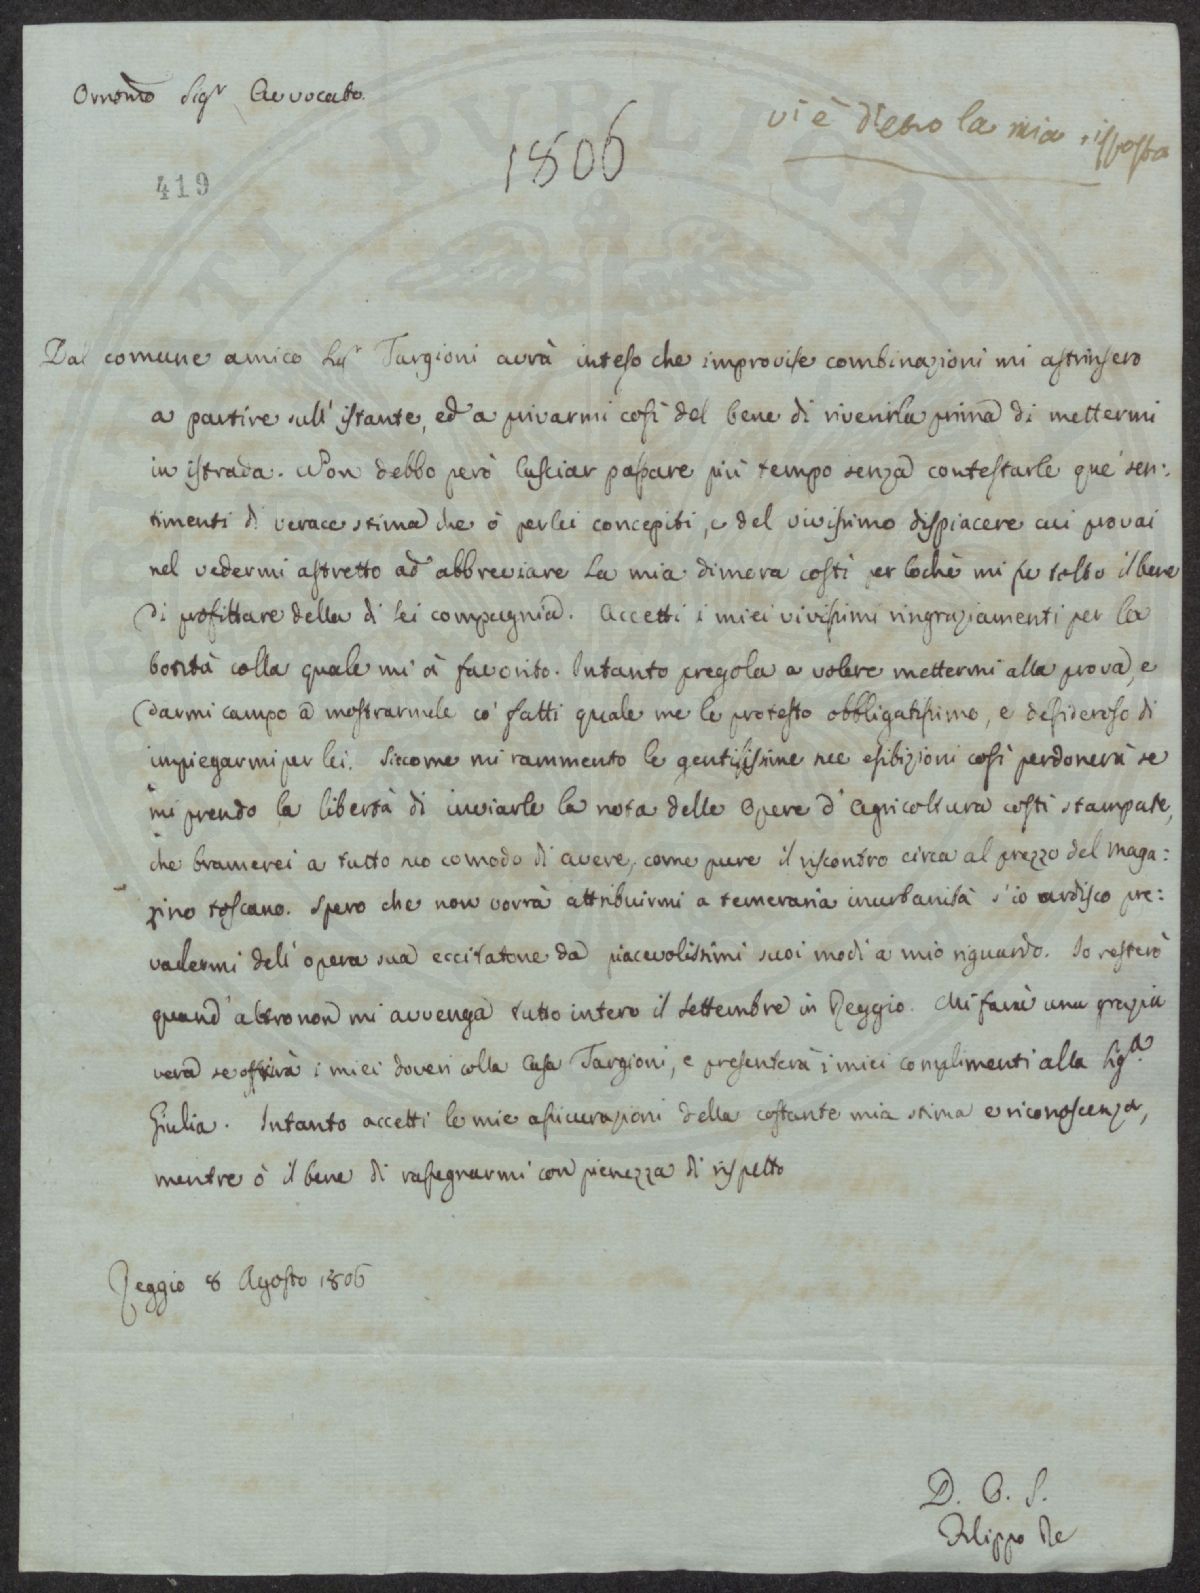 Ornomo Sigr Avvocato.
vi è dietro la mia risposta
1806
419
Dal comune amico Sigr Targioni avrà inteso che improvise combinazioni mi astrinsero
a partire sull' istante, ed a privarmi così del bene di riverirla prima di mettermi
in istrada. Non debbo però lasciar passare più tempo senza contestarle que' sen:
timenti di verace stima che ò per lei concepiti, e del vivissimo dispiacere cui provai
nel vedermi astretto ad abbreviare la mia dimora costì per lochè mi fu tolto il bene
di profittare della di lei compagnia. Accetti i miei vivissimi ringraziamenti per la
bontà colla quale mi à favorito. Intanto pregola a volere mettermi alla prova, e
darmi campo a mostrarmele co' fatti quale me le protesto obbligatissimo, e desideroso di
impiegarmi per lei. Siccome mi rammento le gentilissime sue esibizioni così perdonerà se
mi prendo la libertà di inviarle la nota delle Opere d' Agricoltura costì stampate,
che bramerei a tutto suo comodo di avere, come pure il riscontro circa al prezzo del Maga:
zino toscano. Spero che non vorrà attribuirmi a temeraria inurbanità s' io ardisco pre:
valermi dell' opera sua eccitatone da piacevolissimi suoi modi a mio riguardo. Io resterò
quand' altro non mi avvenga tutto intero il Settembre in Reggio. Mi farà una grazia
vera se offrirà i miei doveri colla Casa Targioni, e presenterà i miei complimenti alla Siga
Giulia. Intanto accetti le mie assicurazioni della costante mia stima e riconoscenza,
mentre ò il bene di rassegnarmi con pienezza di rispetto
Reggio 8 Agosto 1806
D. O. S.
Filippo Re